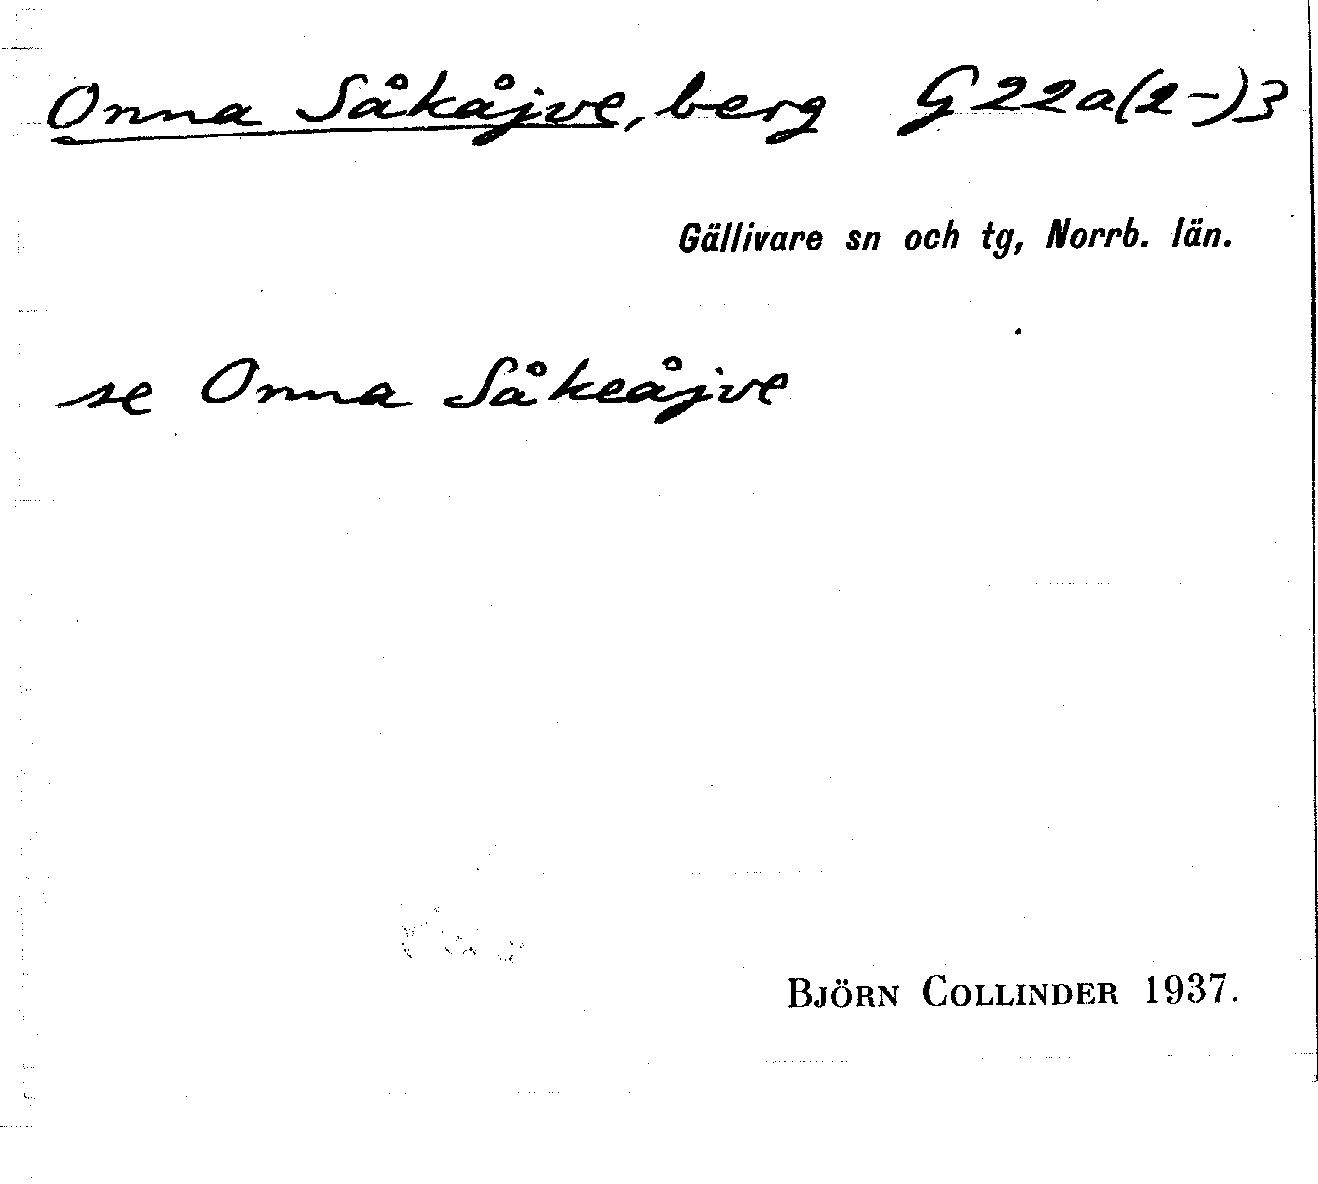 Onna Såkåjve, berg G22a(2-)3
Gällivare sn och tg, Norrb. län.
se Onna Såkeåjve
BJÖRN COLLINDER 1937.